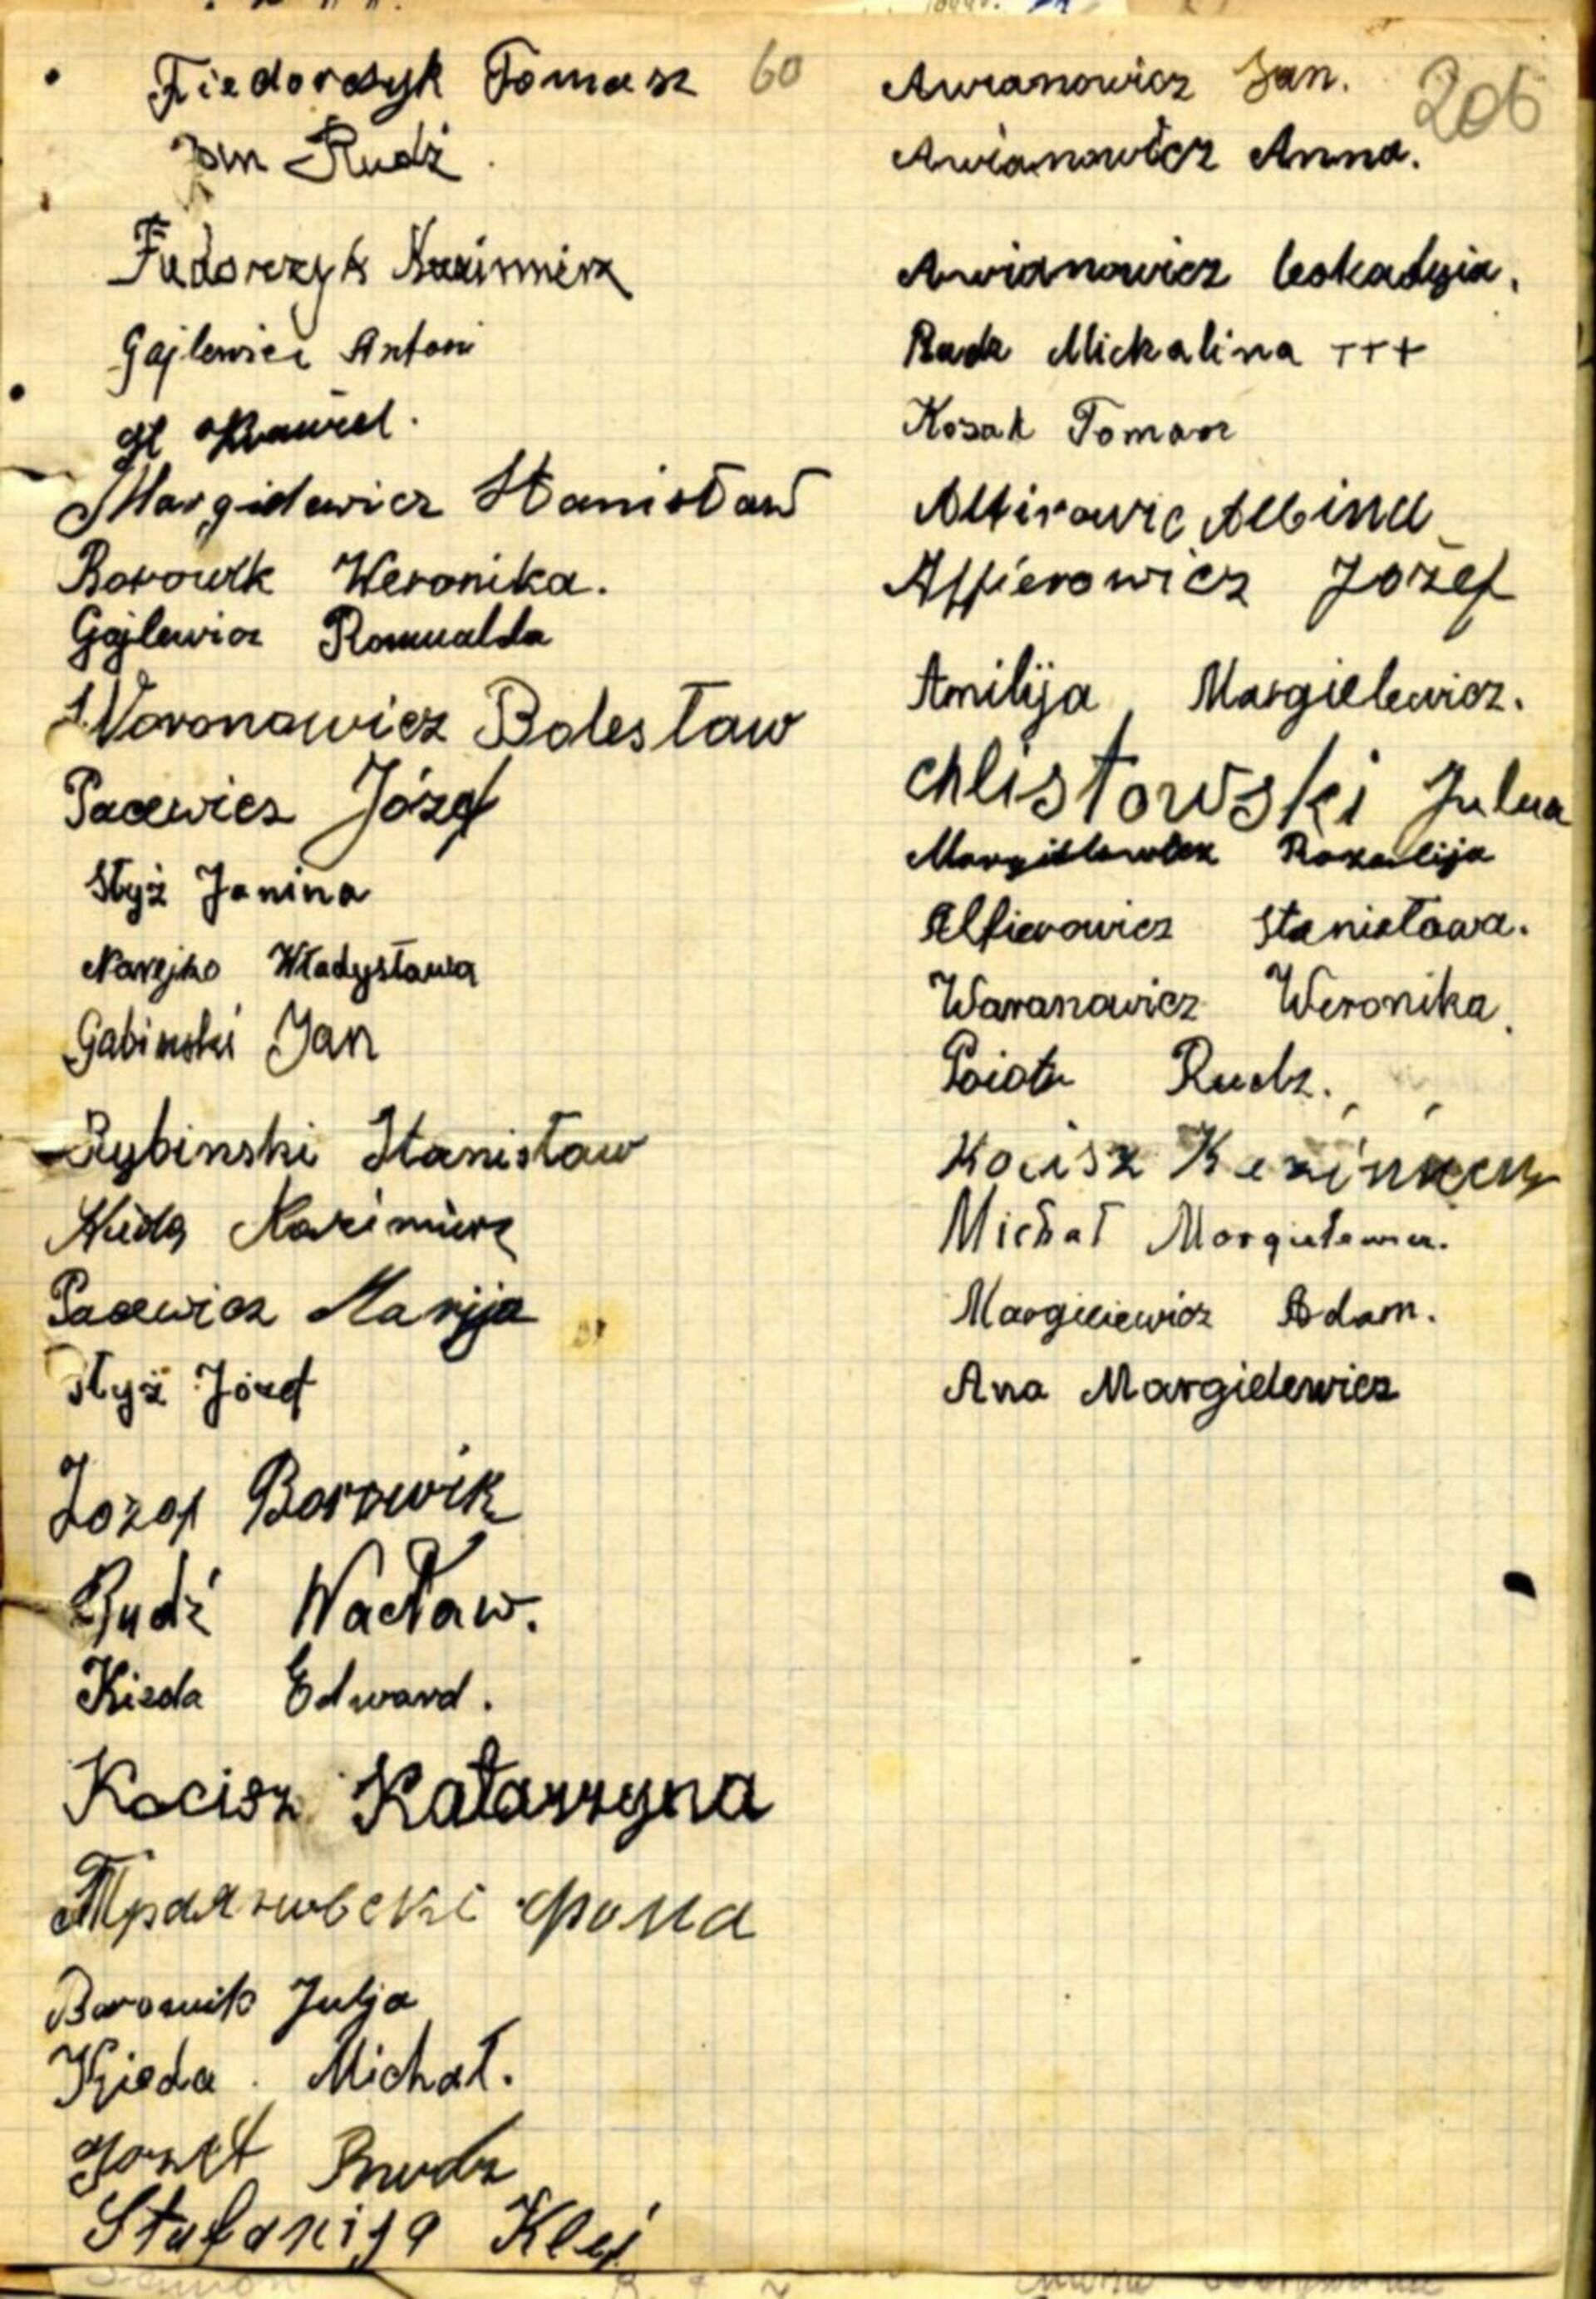 Fiedorczyk Tomasz 60
Jan Rudź
Fiedorczyk Kazimierz
Gajlewicz Antoni
Margielewicz Stanisław
Borowik Weronika.
Gajlewicz Romualda
Woronowicz Bolesław
Pacewicz Józef
Styż Janina
Narejko Władysława
Gabinski Jan
Rybinski Stanisław
Kazimierz
Pacewicz Marija
Styż Józef
Jozef Borowik
Rudź Wacław.
Kizda Edward.
Kocisz Katarzyna
фома
Borowik Julja
Michał.
Rudz
Stefanija Klej
206
Awianowicz Jan.
Awianowicz Anna.
Awianowicz Leokadyia.
Rudz Michalina +++
Kozak Tomasz
Albina
Alfierowicz Józef
Amilija Margielewicz.
Chlistowski Julia
Margielewicz Rozalija
Alfierowicz Stanisława.
Waranowicz Weronika.
Poiotr Rudz.
Kocisz
Michał Margielewicz.
Margielewicz Adam.
Ana Margielewicz